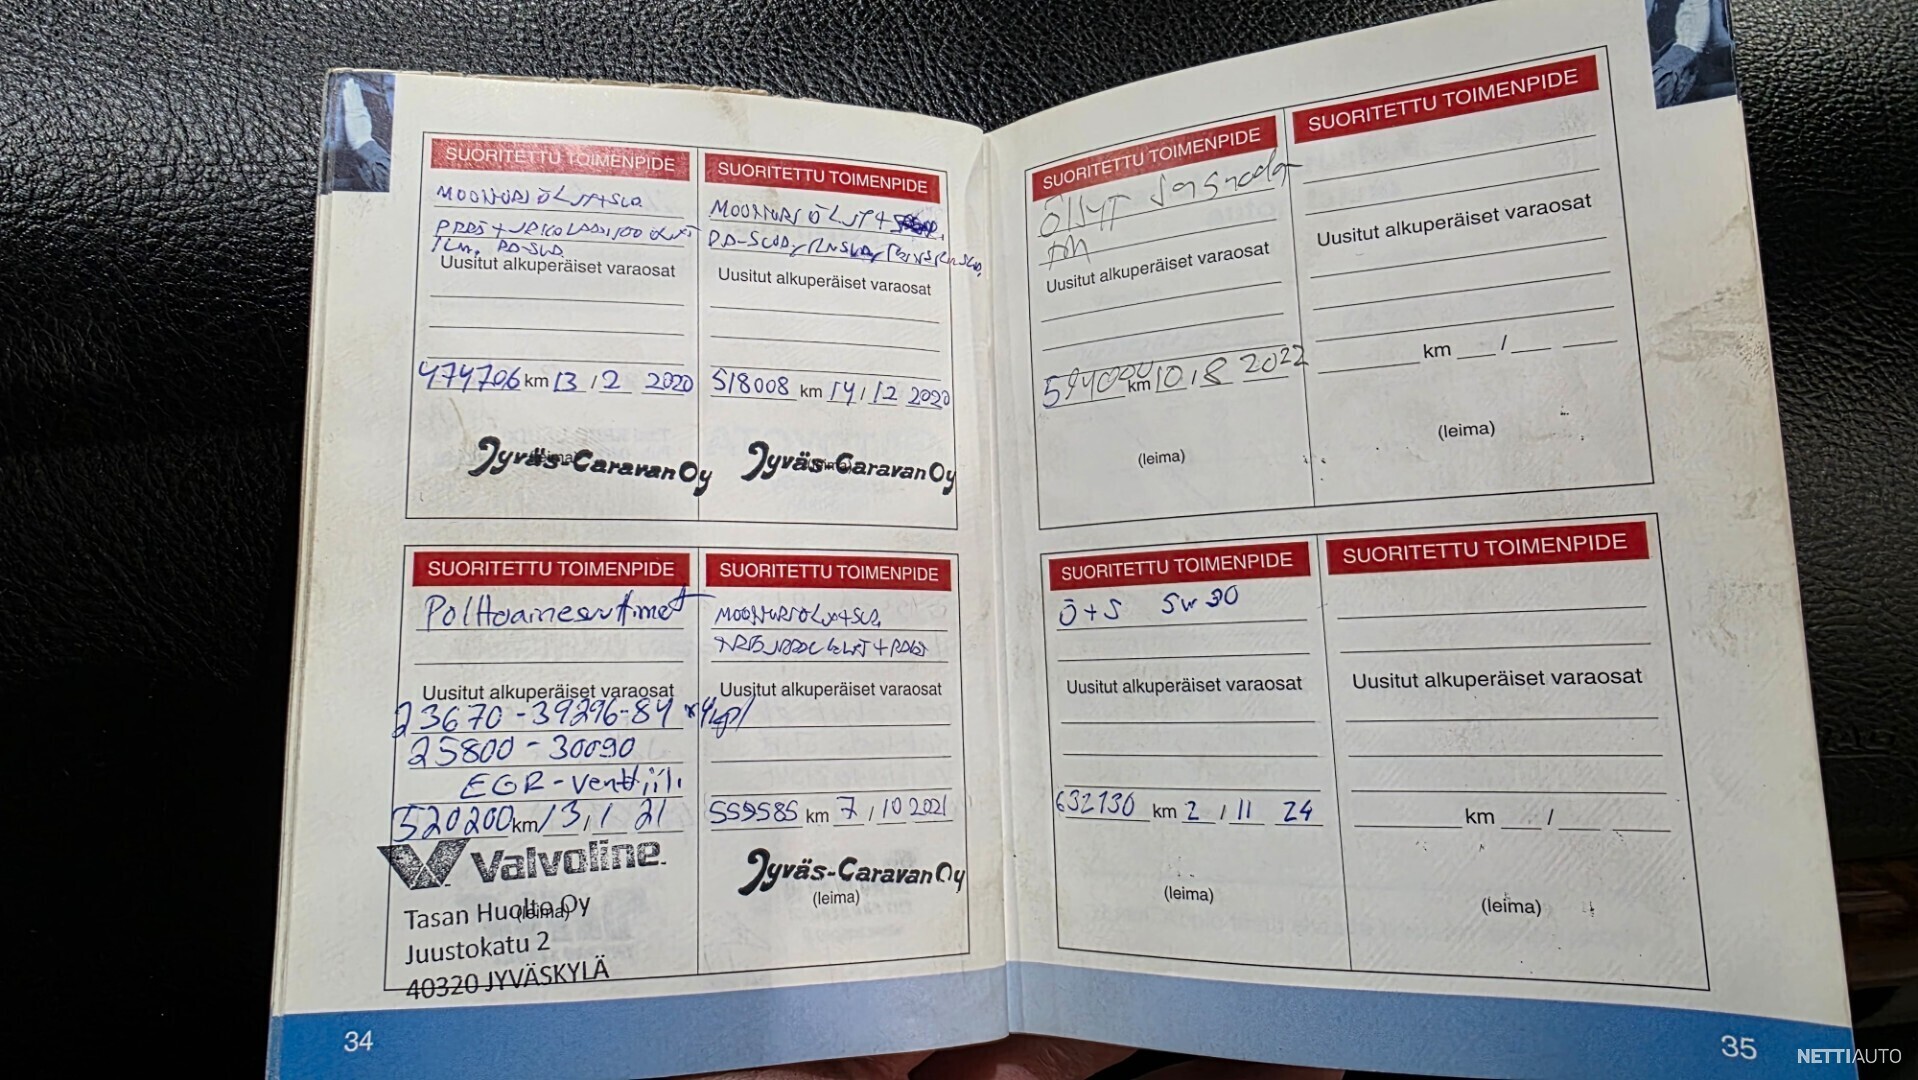 SUORITETTU TOIMENPIDE
MOOTTORIÖLJY+SUO.
PA-SUO.
Uusitut alkuperäiset varaosat
474706 km 13 / 2 2020
(leima)
Jyväs-Caravan Oy
SUORITETTU TOIMENPIDE
MOOTTORIÖLJY+
Uusitut alkuperäiset varaosat
518008 km 14 / 12 2020
Jyväs-Caravan Oy
SUORITETTU TOIMENPIDE
Polttoainesuutimet
Uusitut alkuperäiset varaosat
23670-39296-84 x 4kpl
25800-30090
EGR-venttiili
520200 km 13 / 1 21
Valvoline
Tasan Huolto Oy
(leima)
Juustokatu 2
40320 JYVÄSKYLÄ
SUORITETTU TOIMENPIDE
Uusitut alkuperäiset varaosat
559585 km 7 / 10 2021
Jyväs-Caravan Oy
(leima)
34
SUORITETTU TOIMENPIDE
Öljyt
Uusitut alkuperäiset varaosat
594000 km 10 / 8 2022
(leima)
SUORITETTU TOIMENPIDE
Uusitut alkuperäiset varaosat
km /
(leima)
SUORITETTU TOIMENPIDE
Ö+S 5w30
Uusitut alkuperäiset varaosat
632130 km 2 / 11 24
(leima)
SUORITETTU TOIMENPIDE
Uusitut alkuperäiset varaosat
km /
(leima)
35
NETTIAUTO